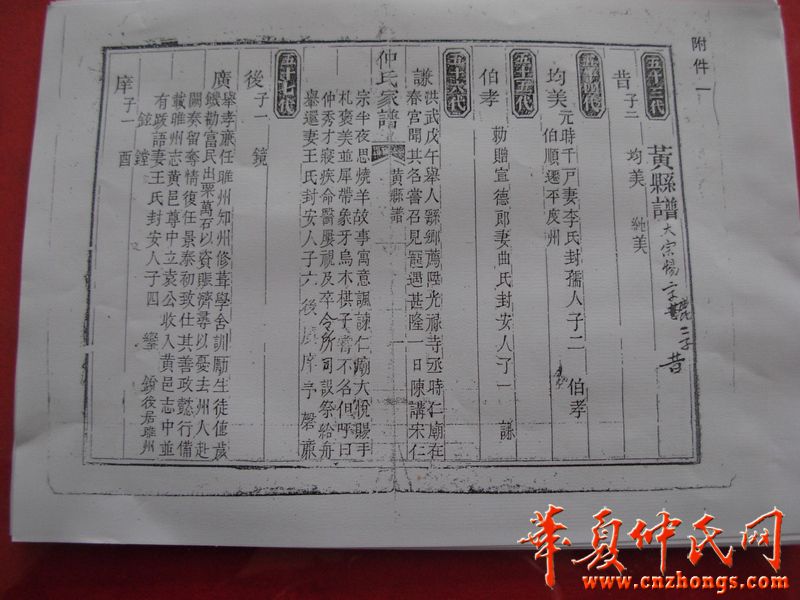 附件一
五十三代
黃縣譜
大宗暢子
二子昔
昔 子二 均美 純美
五十四代
均美 元時千戸妻李氏封孺人子二 伯孝
伯順遷平度州
五十五代
伯孝 勅贈宣德郎妻曲氏封安人子一 謙
五十六代
謙 洪武戊午舉人縣鄉薦陞光祿寺丞時仁廟在
春宮聞其名嘗召見寵遇甚隆一日陳講宋仁
仲氏家譜 黃縣譜
宗半夜思燒羊故事寓意諷諫仁廟大悅賜手
札褒美並犀帶象牙烏木棋子嘗不名但呼曰
仲秀才寢疾命醫屢視及卒令所司設祭給舟
舉還妻王氏封安人子六 後 廣 庠 序 磬 廉
五十七代
後 子一 鏡
廣 舉孝廉任睢州知州修葺學舍訓勵生徒値歲
饑勸富民出粟萬石以資賑濟尋以憂去州人赴
闕奏留奪情復任景泰初致仕其善政懿行備
載睢州志黃邑尊中立袁公收入黃邑志中並
有跋語妻王氏封安人子四 鑾 鎮後居睢州
鉉 鏜
庠 子一 酉
華夏仲氏网
www.cnzhongs.com